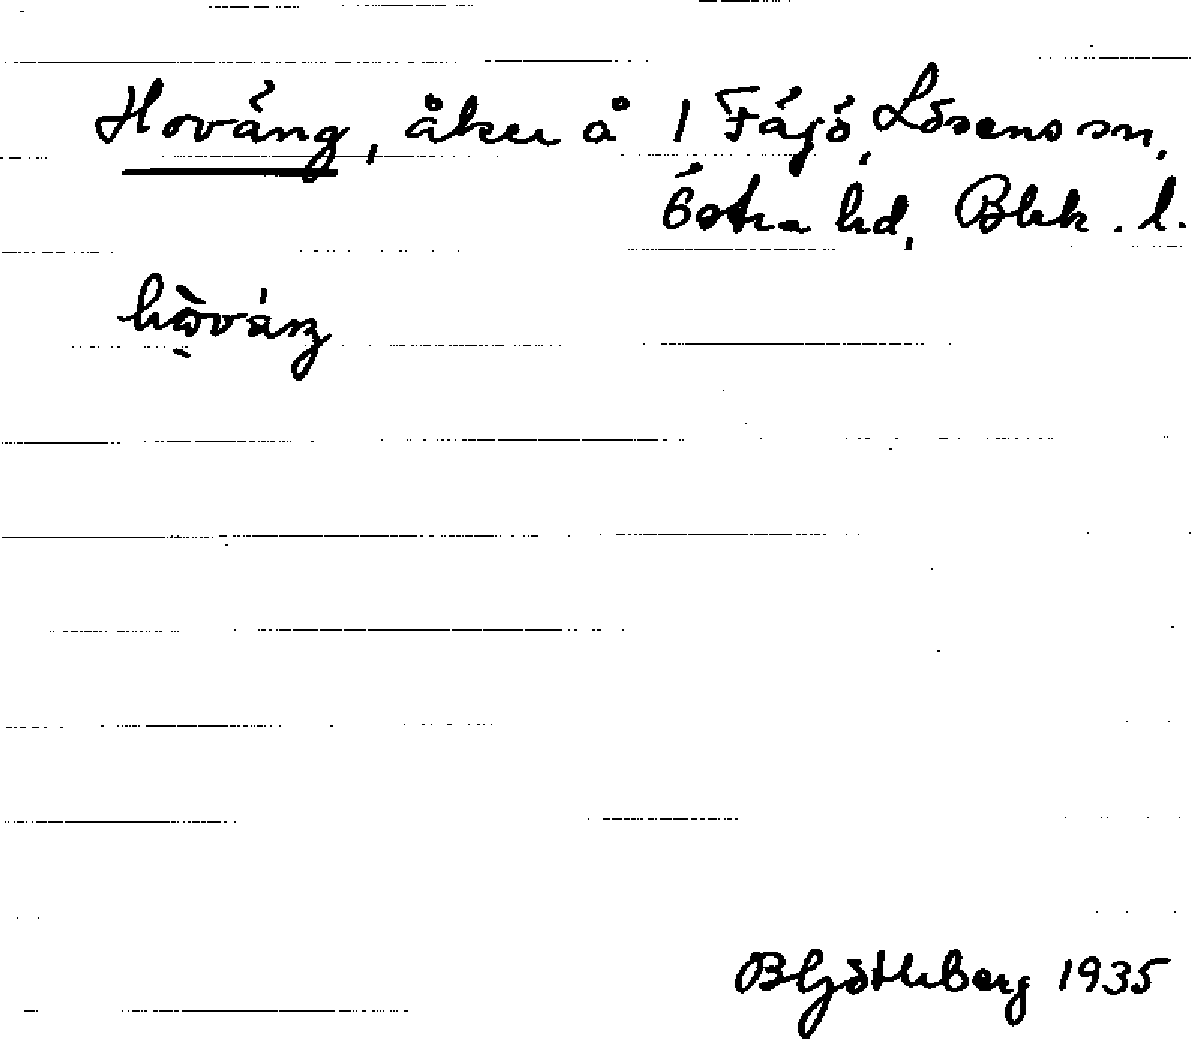 Hovång, åker å 1 Fäjö, Lösens sn,
Östra hd, Blek. l.
BGötleberg 1935